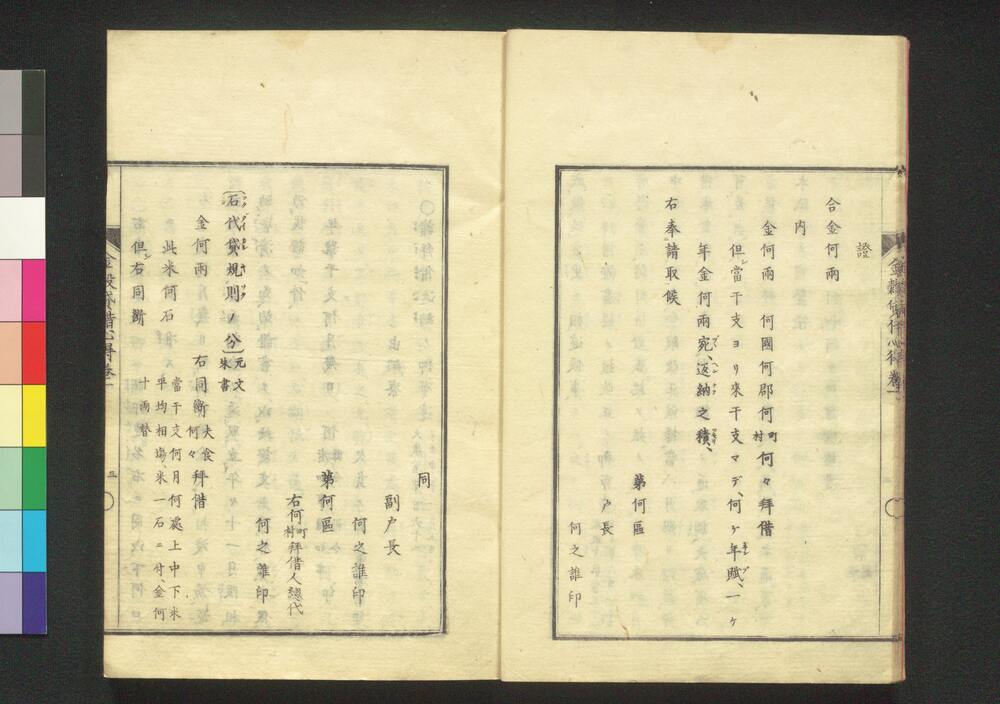 證
合金何兩
内
金何兩 何國何郡何町村何々拜借
但シ當干支ヨリ來干支マデ、何ケ年賦、一ケ
年金何兩宛、返納之積、
右奉請取候
第何區
戸長
何之誰印
同
副戸長
何之誰印
第何區
右何町村拜借人總代
何之誰印
石代貸規則ノ分 元文朱書
金何兩 右同斷 夫食何々 拜借
此米何石 當干支何月何處上中下米平均相塲、米一石ニ付、金何十兩替
右但シ右同斷
金穀貸借心得 卷二